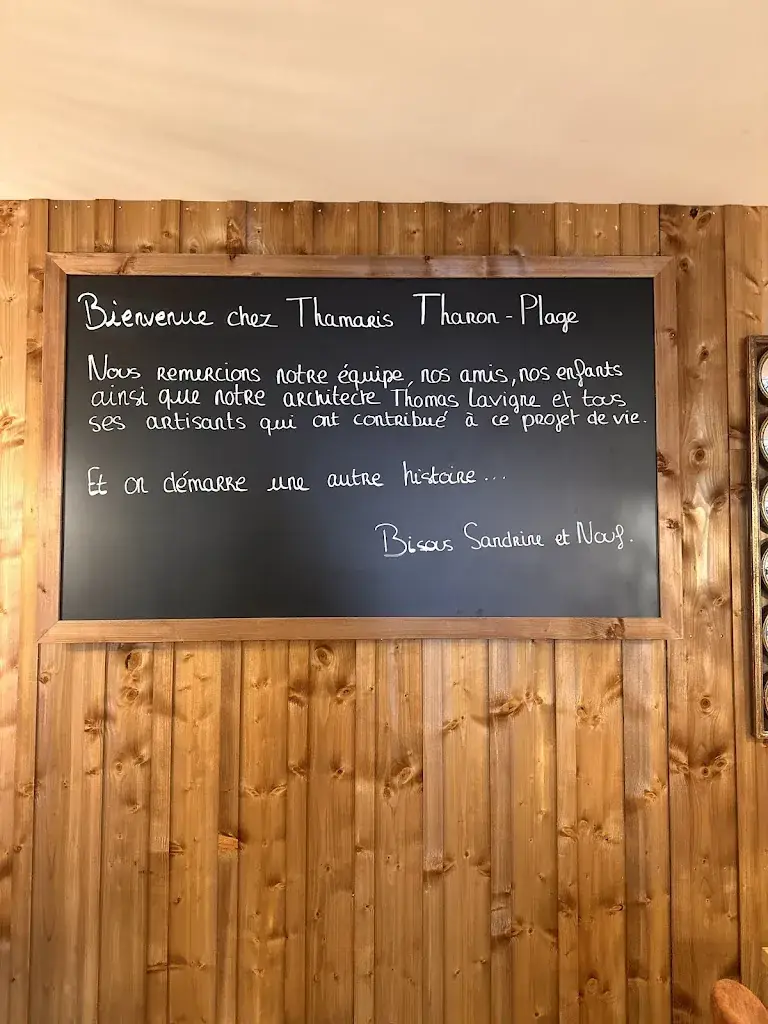 Bienvenue chez Thamaris Tharon-Plage
Nous remercions notre équipe, nos amis, nos enfants
ainsi que notre architecte Thomas Lavigne et tous
ses artisants qui ont contribué à ce projet de vie.
Et on démarre une autre histoire...
Bisous Sandrine et Nouf.